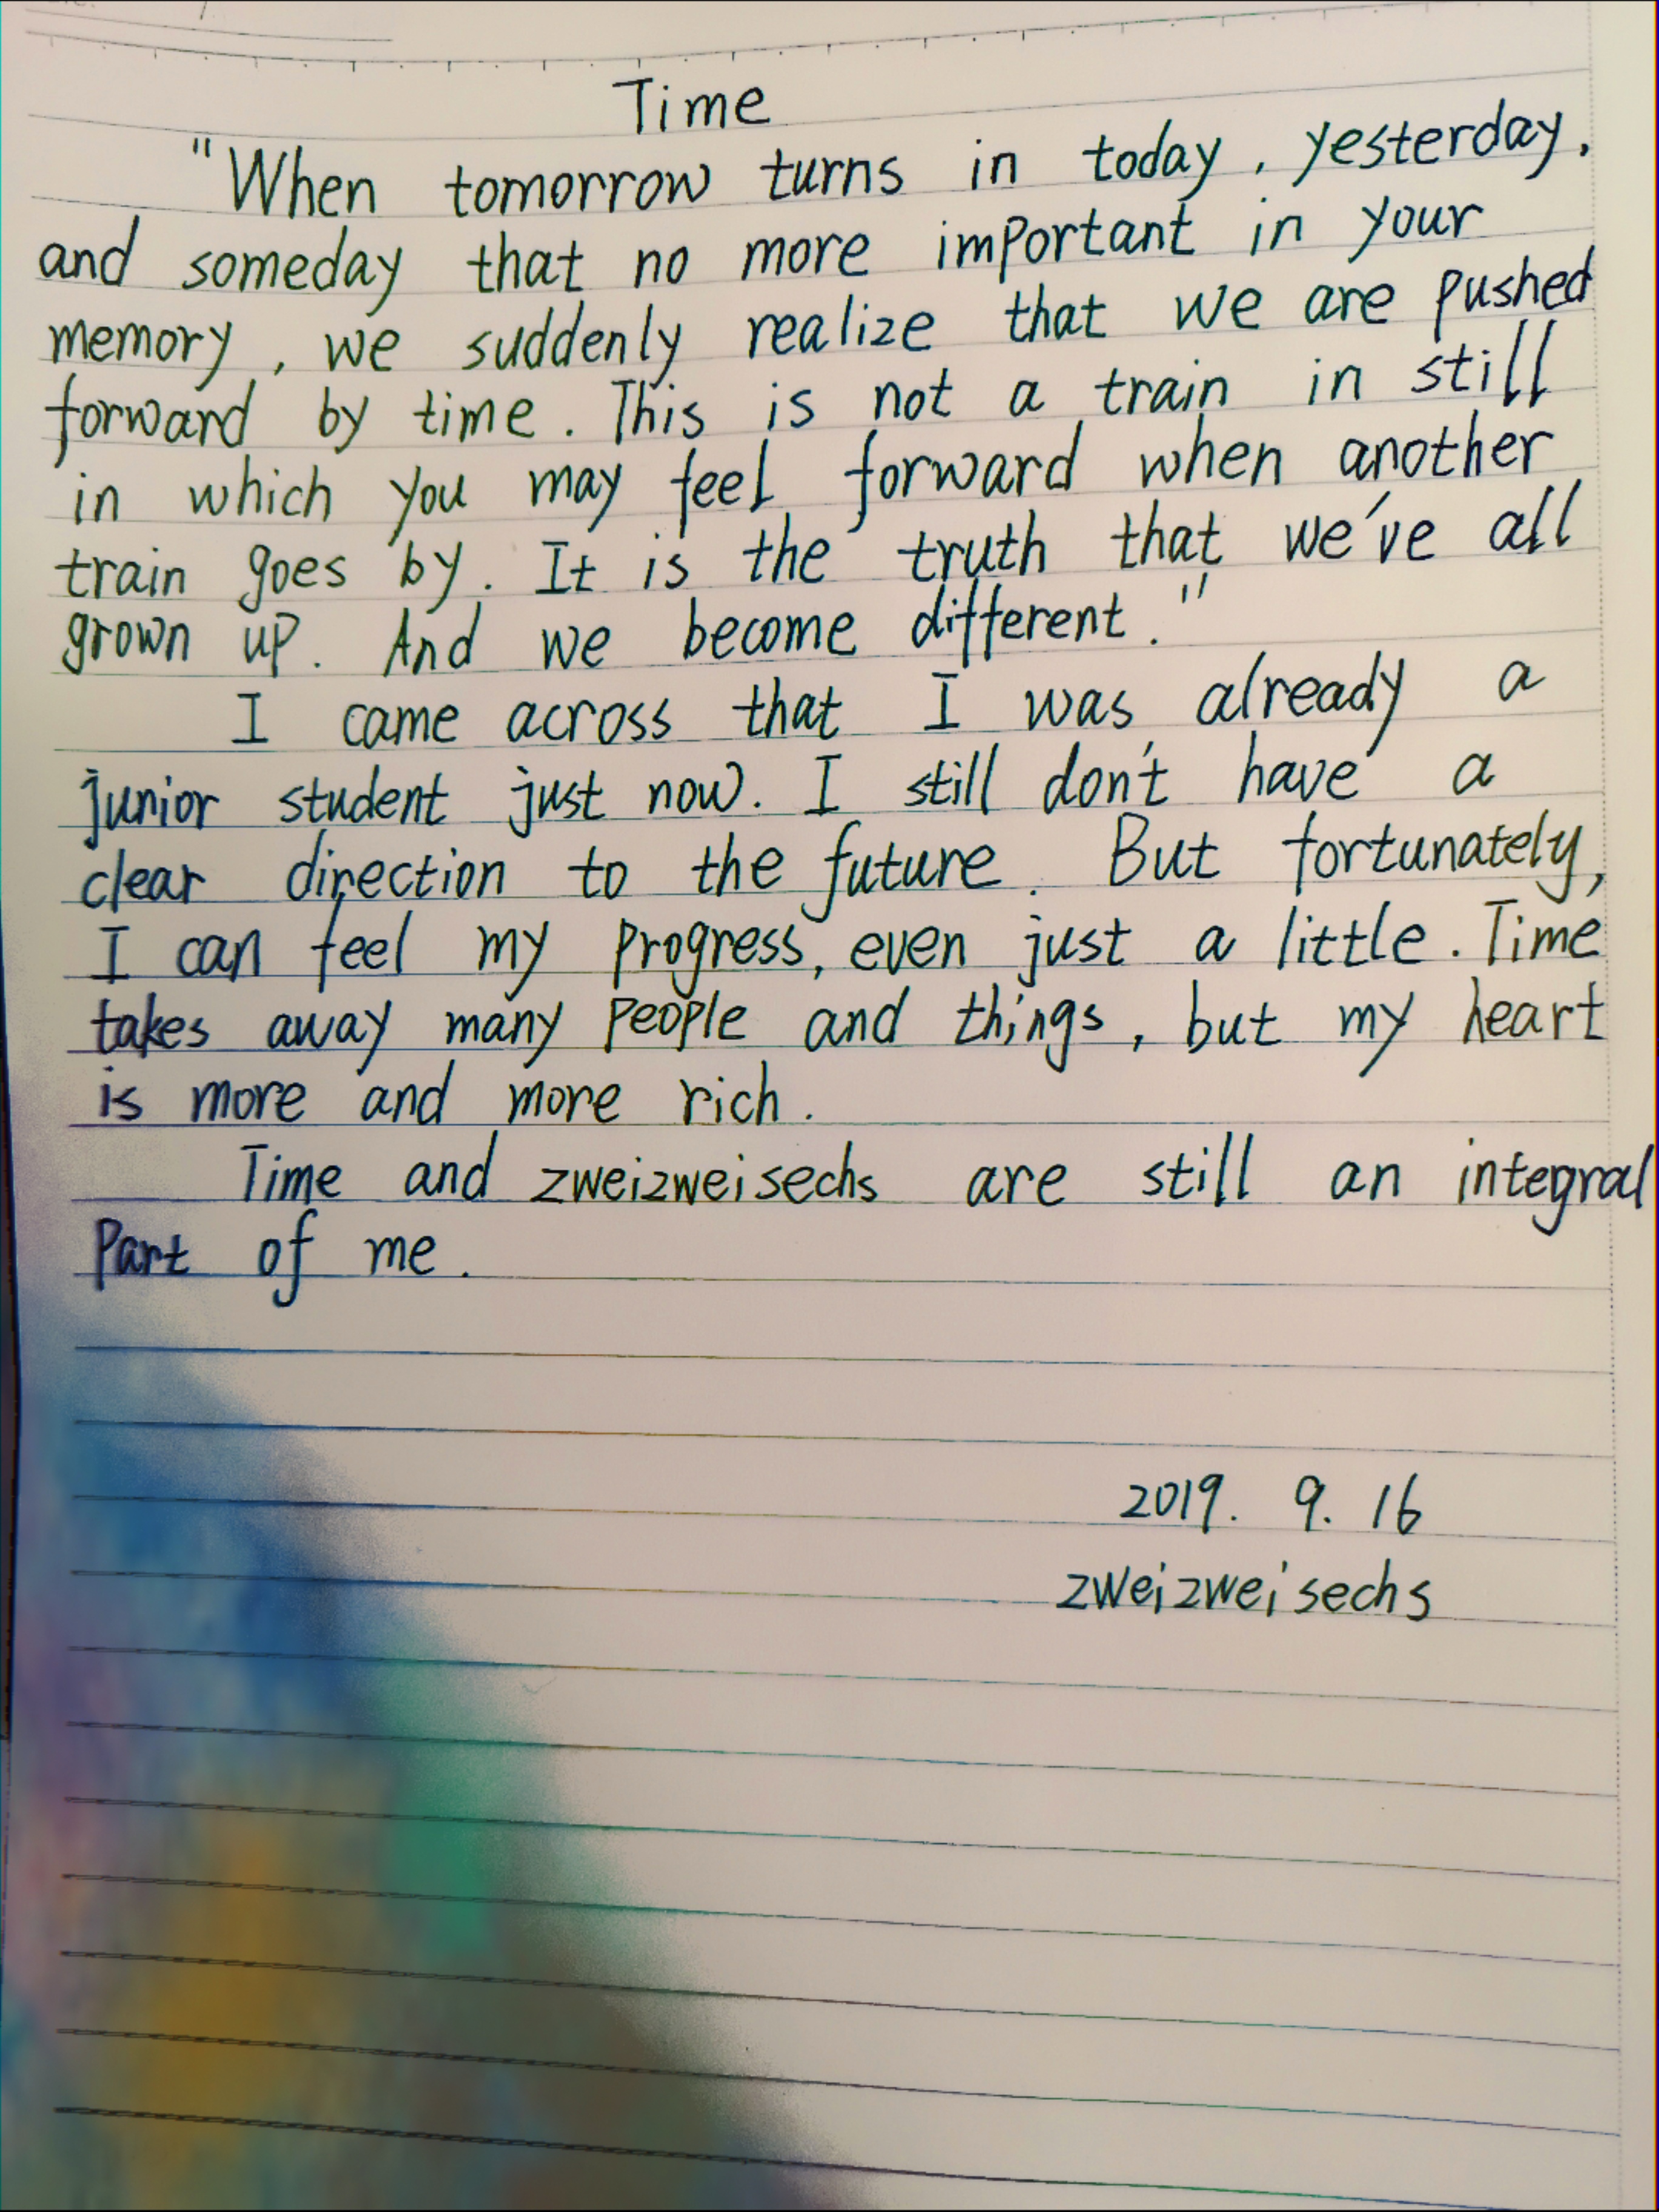 Time
"When tomorrow turns in today, yesterday,
and someday that no more important in your
memory, we suddenly realize that we are pushed
forward by time. This is not a train in still
in which you may feel forward when another
train goes by. It is the truth that we've all
grown up. And we become different."
I came across that I was already a
junior student just now. I still don't have a
clear direction to the future. But fortunately,
I can feel my progress, even just a little. Time
takes away many people and things, but my heart
is more and more rich.
Time and zweizweisechs are still an integral
Part of me.
2019. 9. 16
zweizweisechs